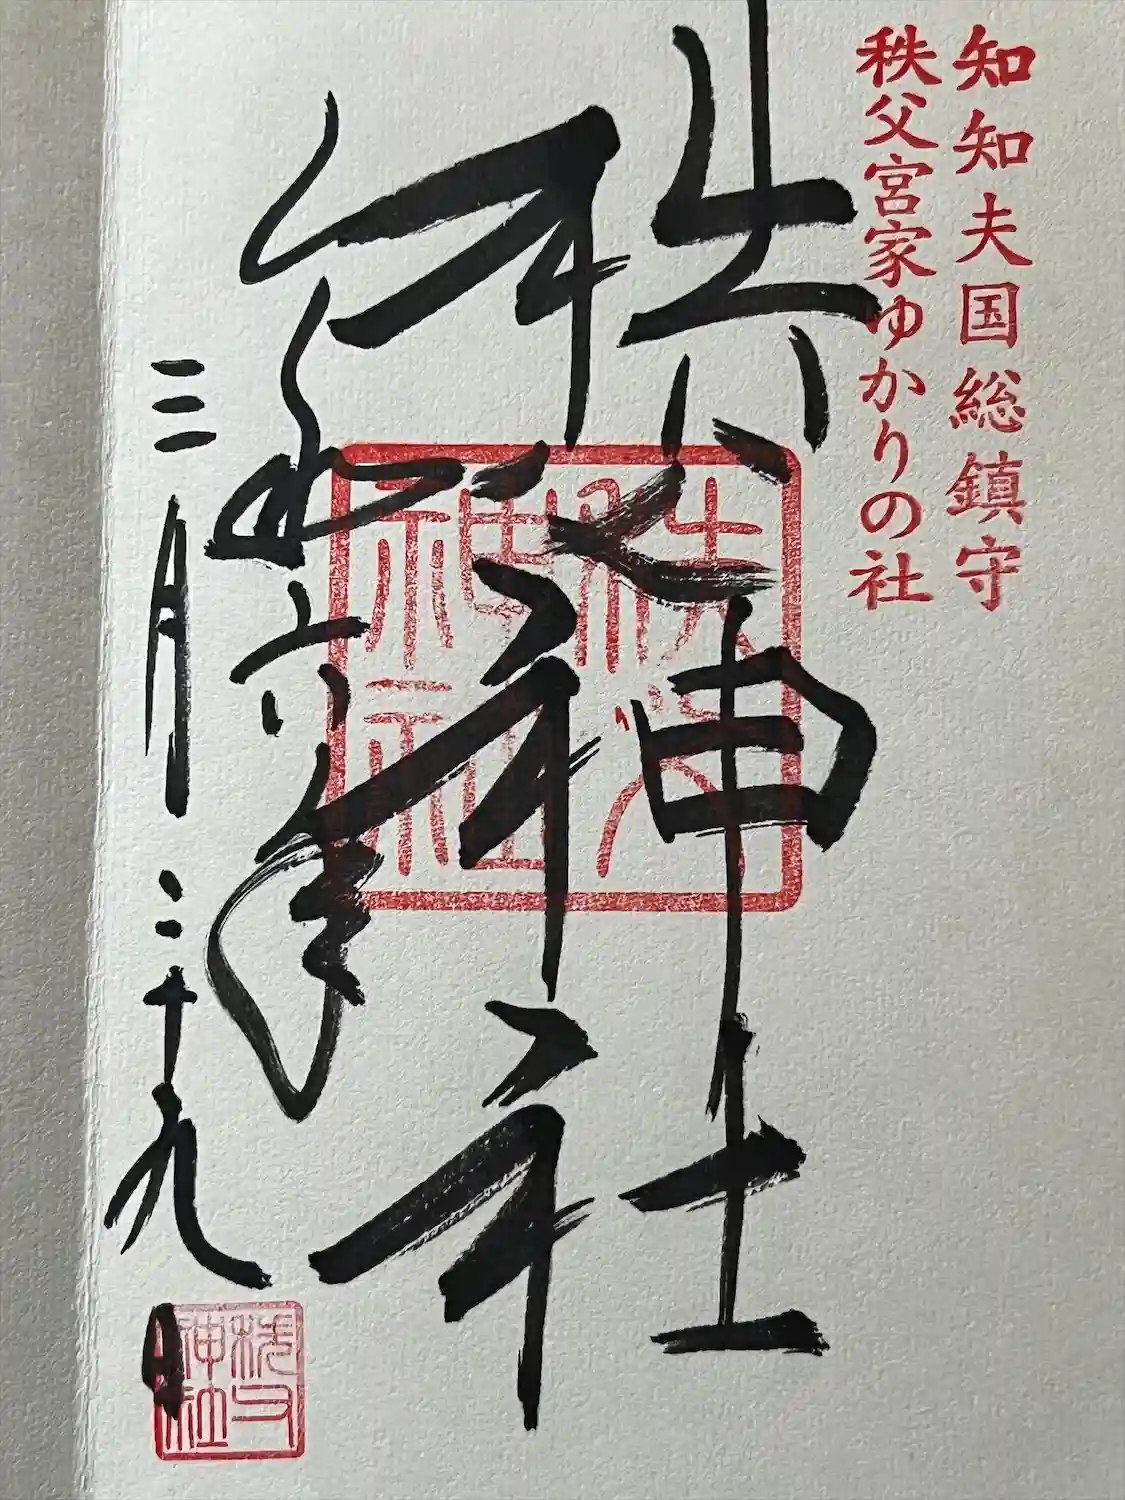 知知夫国総鎮守
秩父宮家ゆかりの社
秩父神社
秩父神社
令和六年
三月二十九日
秩父神社